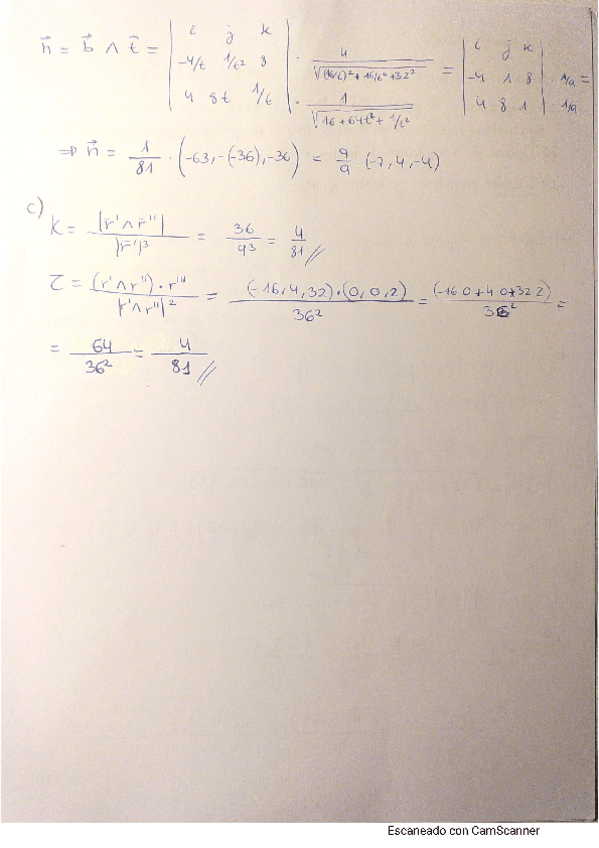 n⃗ = b⃗ ∧ t⃗ = | i j k ; -4/t 1/t² 8 ; 4 8t 1/t | · 4/√((16/t)²+16/t⁴+32²) · 1/√(16+64t²+1/t²) = | i j k ; -4 1 8 ; 4 8 1 | · 1/9 · 1/9 =
=> n⃗ = 1/81 · (-63, -(-36), -36) = 9/9 (-7, 4, -4)
c) K = |r' ∧ r''| / |r'|³ = 36/9³ = 4/81 //
τ = (r' ∧ r'') · r''' / |r' ∧ r''|² = (-16, 4, 32) · (0, 0, 2) / 36² = (-16·0+4·0+32·2) / 36² =
= 64/36² = 4/81 //
Escaneado con CamScanner